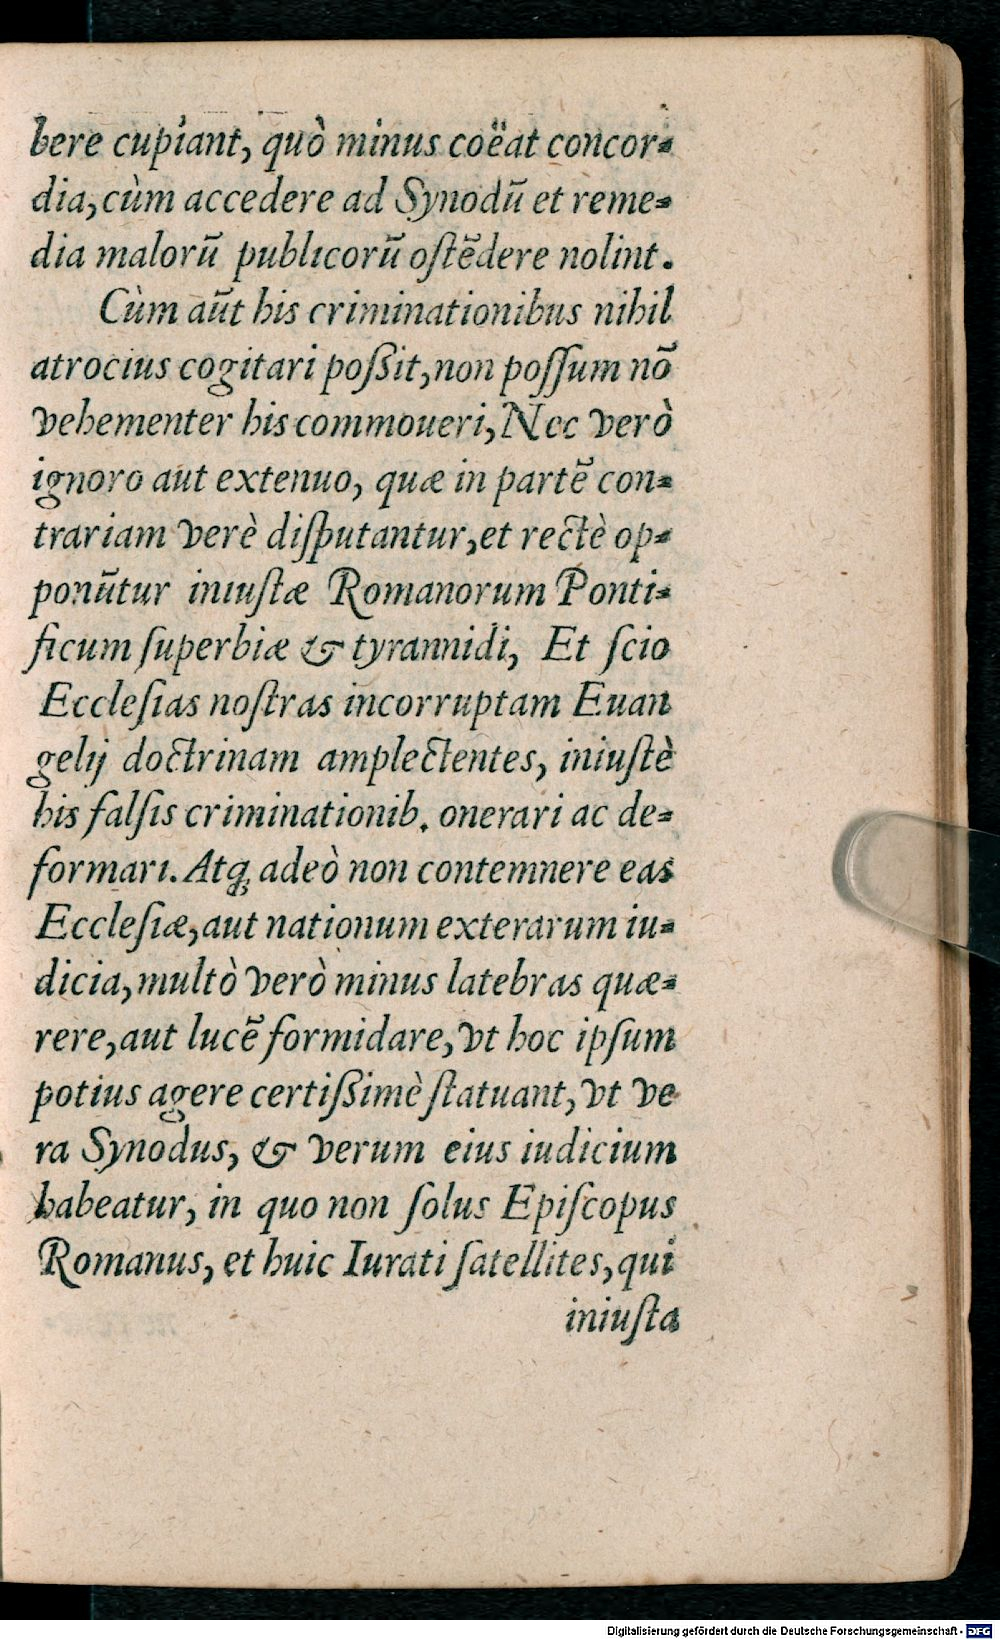 bere cupiant, quò minus coëat concor-
dia, cùm accedere ad Synodū et reme-
dia malorū publicorū ostēdere nolint.
Cùm aūt his criminationibus nihil
atrocius cogitari poßit, non possum nō
vehementer his commoueri, Nec verò
ignoro aut extenuo, quæ in partē con-
trariam verè disputantur, et rectè op-
ponūtur iniustæ Romanorum Ponti-
ficum superbiæ & tyrannidi, Et scio
Ecclesias nostras incorruptam Euan
gelij doctrinam amplectentes, iniustè
his falsis criminationib. onerari ac de-
formari. Atq; adeò non contemnere eas
Ecclesiæ, aut nationum exterarum iu-
dicia, multò verò minus latebras quæ-
rere, aut lucē formidare, vt hoc ipsum
potius agere certißimè statuant, vt ve
ra Synodus, & verum eius iudicium
habeatur, in quo non solus Episcopus
Romanus, et huic Iurati satellites, qui
iniusta
Digitalisierung gefördert durch die Deutsche Forschungsgemeinschaft - DFG